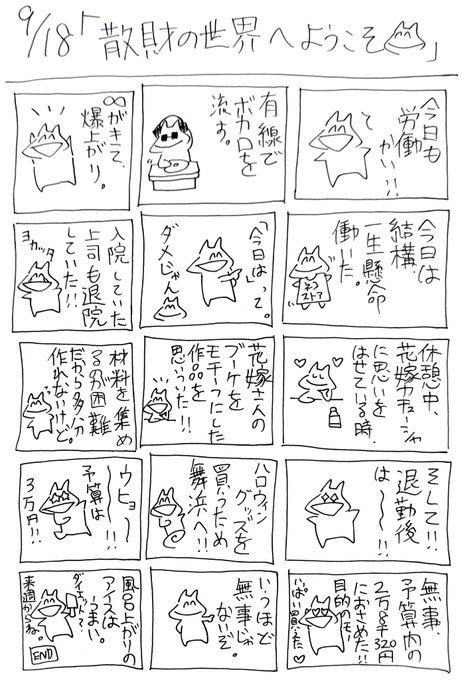 9/18「散財の世界へようこそ」
今日も
労働
てぇ
かい!!
有線で
ボカロを
流す。
∞がキて、
爆上がり。
今日は
結構、
一生懸命
働いた。
ネコ
ストア
「今日は」って。
ダメじゃん
入院していた
上司も退院
していた!!
ヨカッタ
休憩中、
花嫁カチューシャ
に思いを
はせている時、
花嫁さんの
ブーケを
モチーフにした
作品を
思いついた!!
材料を集め
るのが困難
だから多分
作れないけど。
そして!!
退勤後
は〜〜!!
ハロウィン
グッズを
買うため
舞浜へ!!
ウヒョ〜
予算は
〜〜
3万円!!
無事、
予算内の
2万8千320円
におさめた!!
目的のモノ
いっぱい買えた♡
いうほど
無事じゃ
ないぞ。
風呂上がりの
アイスは
うまい。
ダイエットって
来週からね。
END